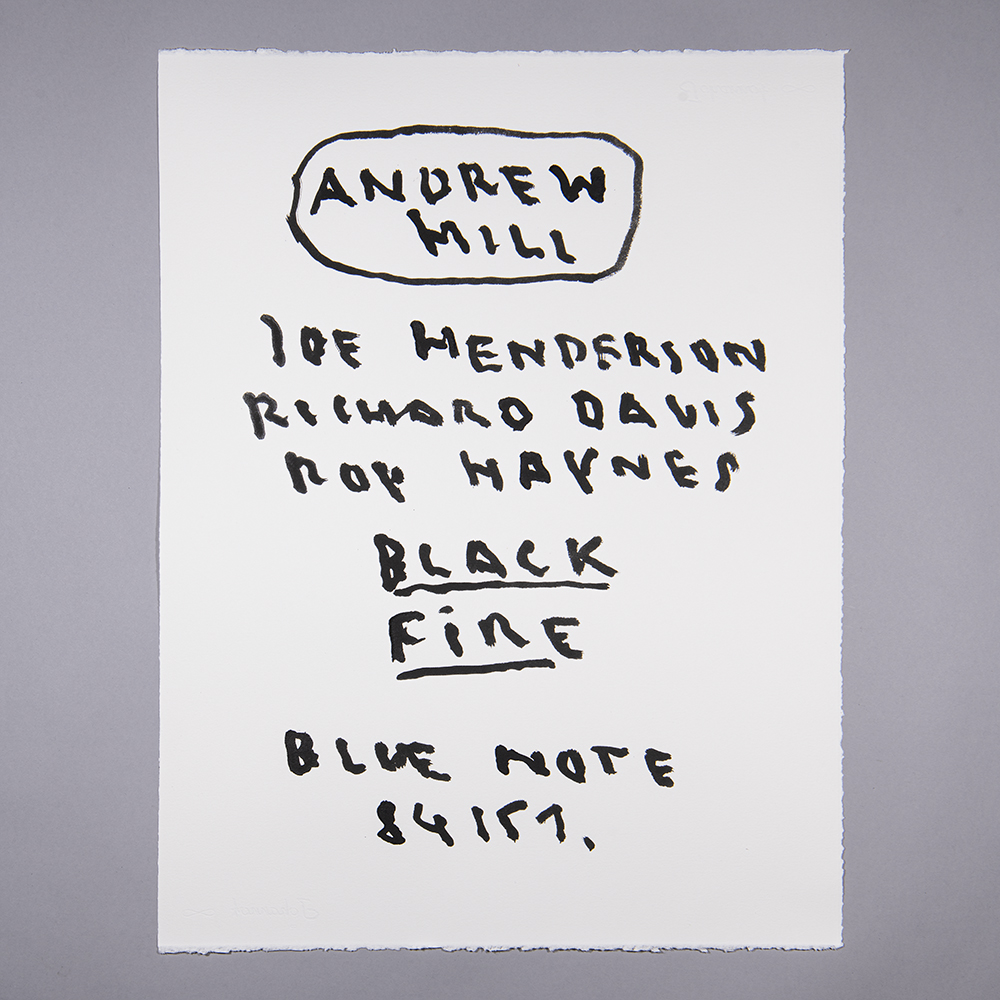 ANDREW
HILL
JOE HENDERSON
RICHARD DAVIS
ROY HAYNES
BLACK
FiRE
BLUE NOTE
84151.